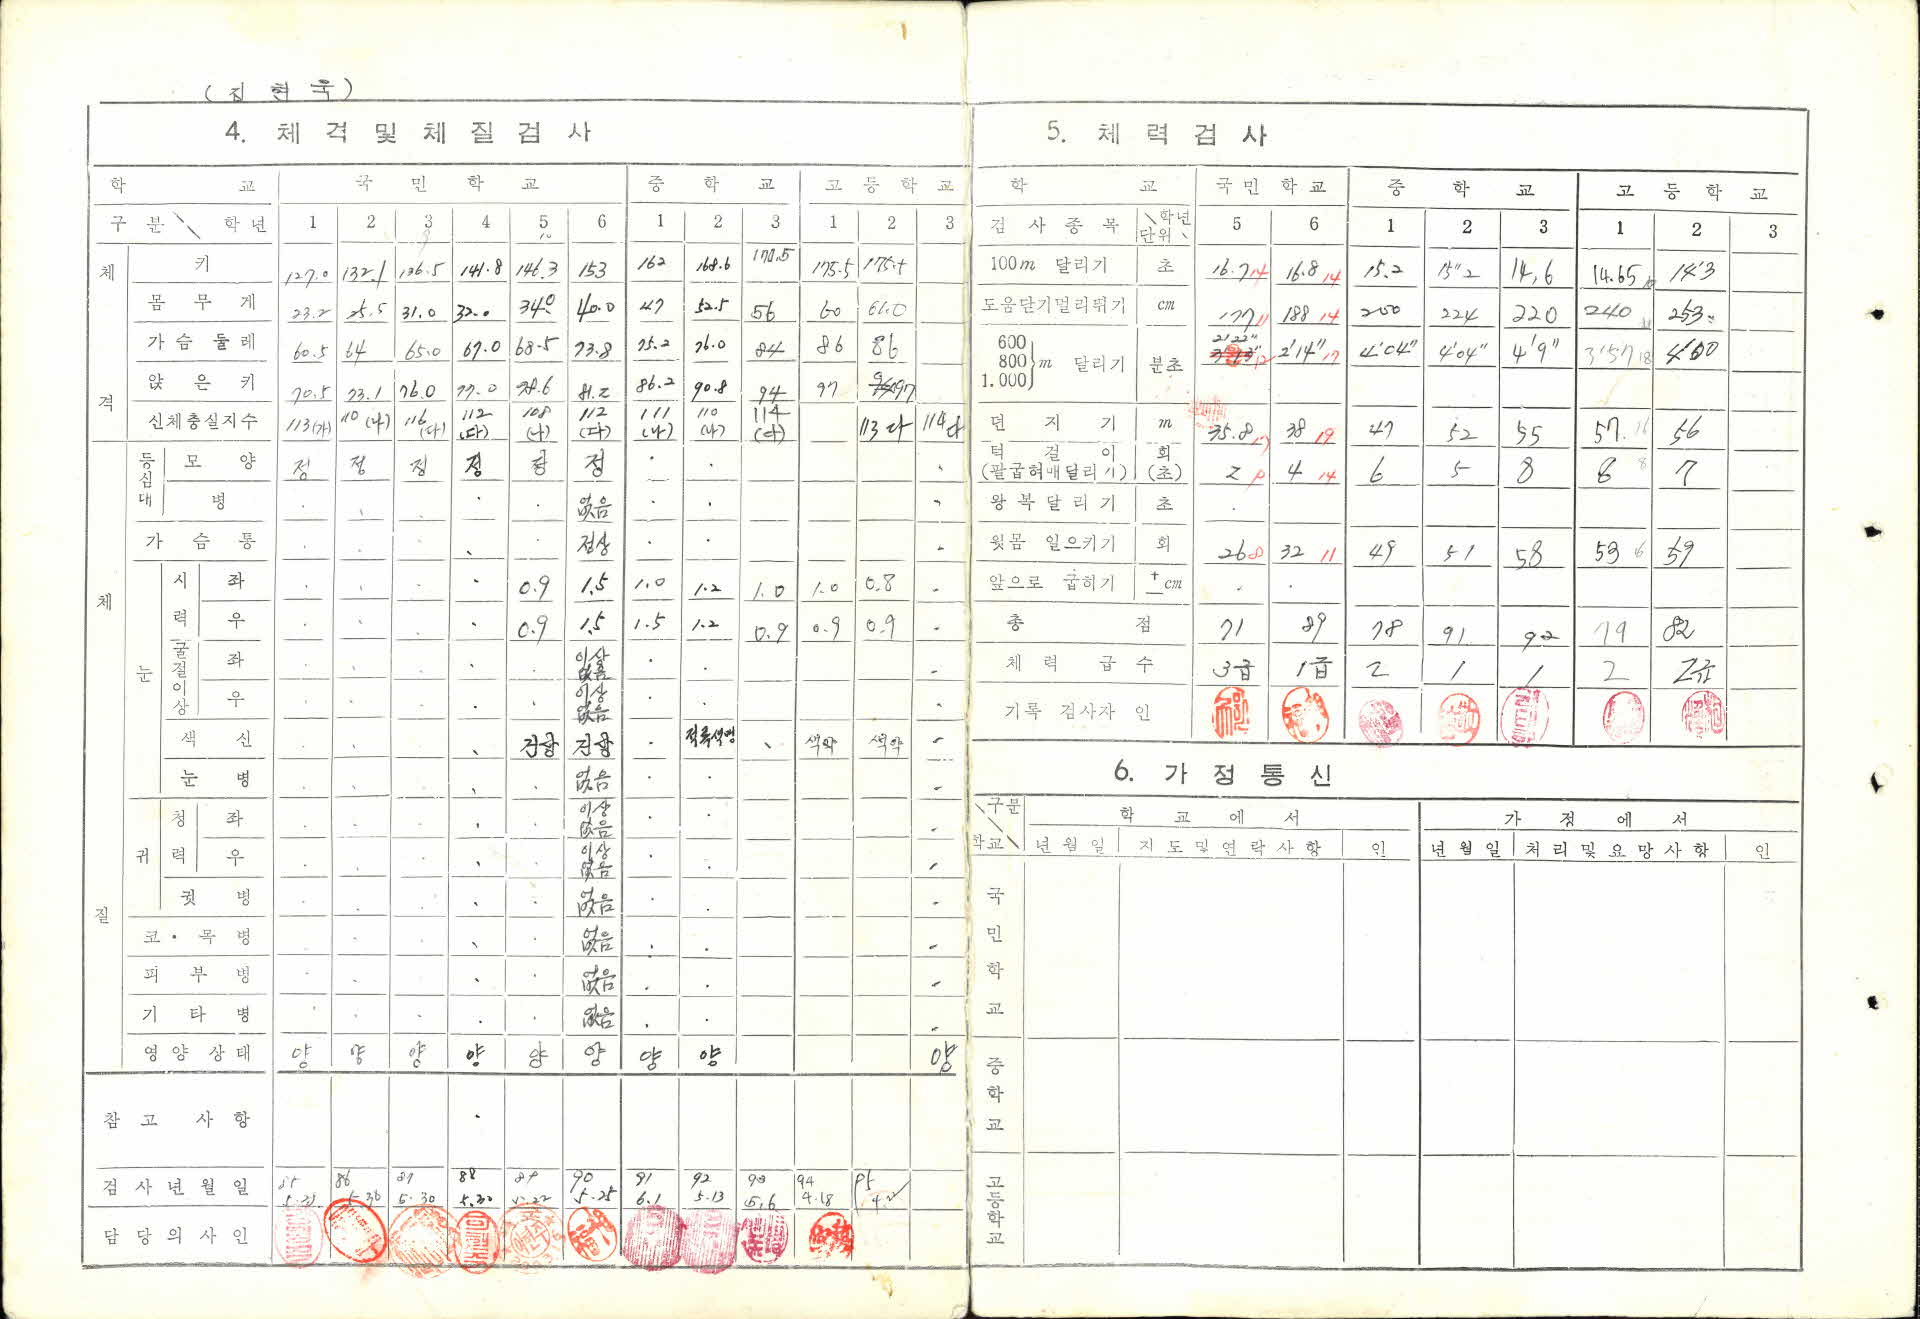 (김현욱)
4. 체격 및 체질검사
학 교 국민학교 중학교 고등학교
구분 \ 학년 1 2 3 4 5 6 1 2 3 1 2 3
체격
키 127.0 132.1 136.5 141.8 146.3 153 162 168.6 170.5 175.5
몸무게 23.2 25.5 31.0 32.0 34.0 40.0 47 52.5 56 60 61.0
가슴둘레 60.5 64 65.0 67.0 68.5 73.8 75.2 76.0 84 86 86
앉은키 70.5 73.1 76.0 77.0 78.6 81.2 86.2 90.8 94 97 97
신체충실지수 113(가) 110(나) 116(다) 112(다) 108(나) 112(다) 111(나) 110(나) 114(다) 113 다 114 다
체질
등심대 모양 정 정 정 정 정 정
병 없음
가슴통 정상
눈
시력 좌 0.9 1.5 1.0 1.2 1.0 1.0 0.8
우 0.9 1.5 1.5 1.2 0.9 0.9 0.9
굴절이상 좌 이상없음
우 이상없음
색신 적록색맹 색약 색약
눈병 없음
귀
청력 좌 이상없음
우 이상없음
귓병 없음
코·목병 없음
피부병 없음
기타병 없음
영양상태 양 양 양 양 양 양 양 양 양
참고사항
검사년월일 86 5.30 87 5.30 88 5.30 89 5.22 90 5.25 91 6.1 92 5.13 93 5.6 94 4.18
담당의사인
5. 체력검사
학 교 국민학교 중학교 고등학교
검사종목 \학년 단위\ 5 6 1 2 3 1 2 3
100m 달리기 초 16.7 14 16.8 14 15.2 15"2 14.6 14.65 14'3
도움단기멀리뛰기 cm 177 11 188 14 200 224 220 240 253
600 800 1.000 }m 달리기 분초 2'22" 12 2'14" 17 4'04" 4'04" 4'9" 3'57 18 4'00
던지기 m 35.8 17 38 19 47 52 55 57 16 56
턱걸이 (팔굽혀매달리기) 회 (초) 2 4 14 6 5 8 8 8 7
왕복달리기 초
윗몸 일으키기 회 26 8 32 11 49 51 58 53 6 59
앞으로 굽히기 ±cm
총점 71 89 78 91 92 79 82
체력급수 3급 1급 2 1 1 2 2급
기록 검사자 인
6. 가정통신
구분 \ 학교 \ 학교에서 가정에서
년월일 지도및연락사항 인 년월일 처리및요망사항 인
국민학교
중학교
고등학교